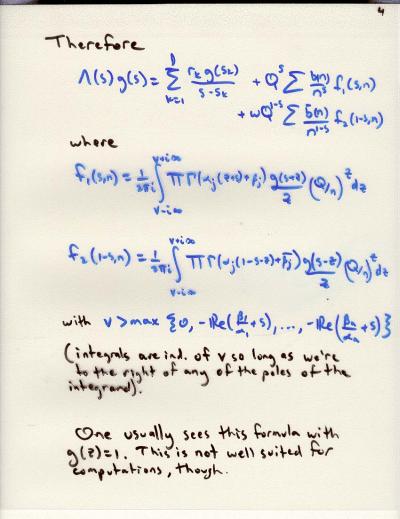 4
Therefore
Λ(s) g(s) = Σ_{k=1}^{l} r_k g(s_k) / (s - s_k) + Q^s Σ b(n)/n^s f_1(s,n)
+ ωQ^{1-s} Σ b̄(n)/n^{1-s} f_2(1-s,n)
where
f_1(s,n) = 1/2πi ∫_{v-i∞}^{v+i∞} Π Γ(α_j(z+s)+β_j) g(s+z)/z (Q/n)^z dz
f_2(1-s,n) = 1/2πi ∫_{v-i∞}^{v+i∞} Π Γ(α_j(1-s+z)+β̄_j) g(s-z)/z (Q/n)^z dz
with v > max {0, -Re(β_1/α_1 + s), ..., -Re(β_a/α_a + s)}
(integrals are ind. of v so long as we're
to the right of any of the poles of the
integrand).
One usually sees this formula with
g(z)=1. This is not well suited for
computations, though.